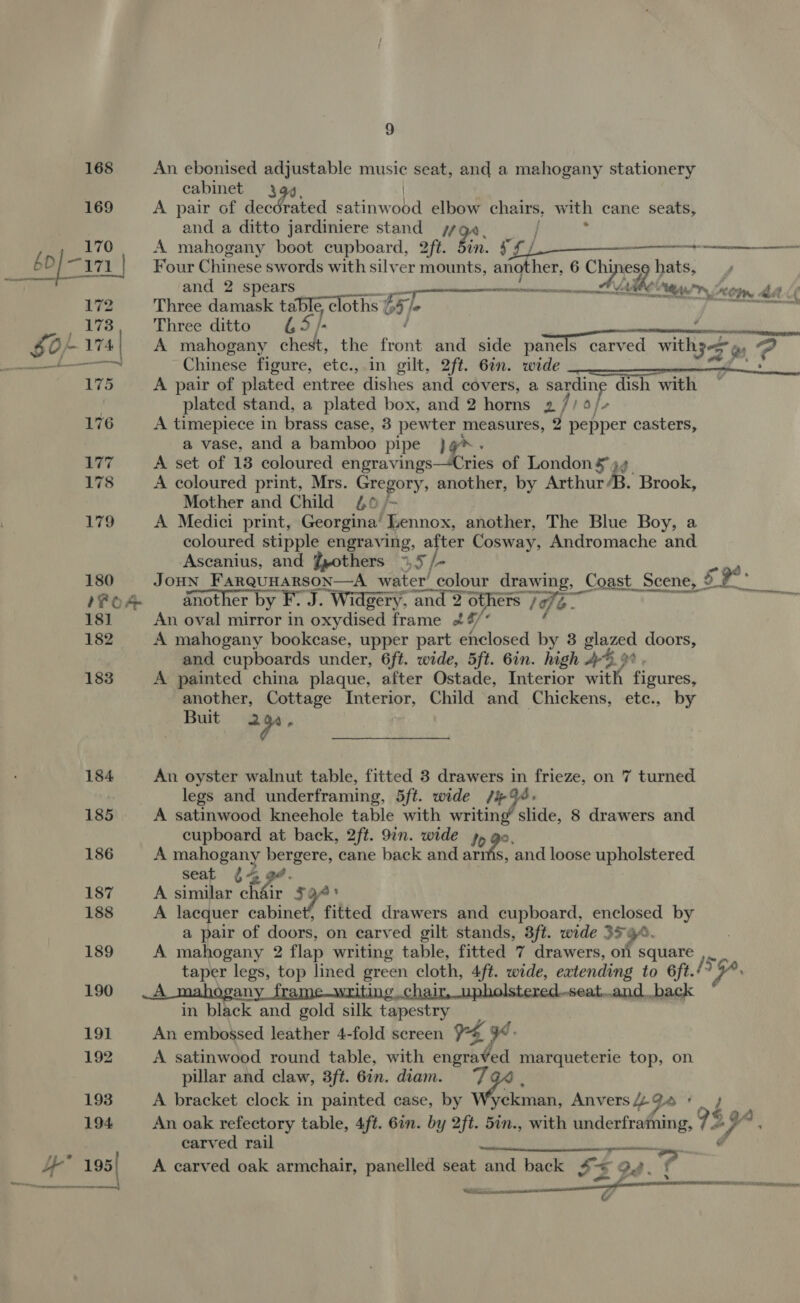 9
168 An ebonised adjustable music seat, and a mahogany stationery
cabinet
169 A pair of decorated satinwood elbow chairs, with cane seats,
and a ditto jardiniere stand
170 A mahogany boot cupboard, 2ft. 5in.
60/- 171 Four Chinese swords with silver mounts, another, 6 Chinese hats,
and 2 spears
172 Three damask table cloths 65/-
173 Three ditto 65/-
174 A mahogany chest, the front and side panels carved with
Chinese figure, etc., in gilt, 2ft. 6in. wide
175 A pair of plated entree dishes and covers, a sardine dish with
plated stand, a plated box, and 2 horns
176 A timepiece in brass case, 3 pewter measures, 2 pepper casters,
a vase, and a bamboo pipe
177 A set of 13 coloured engravings—Cries of London
178 A coloured print, Mrs. Gregory, another, by Arthur B. Brook,
Mother and Child
179 A Medici print, Georgina Lennox, another, The Blue Boy, a
coloured stipple engraving, after Cosway, Andromache and
Ascanius, and others
180 JOHN FARQUHARSON—A water colour drawing, Coast Scene,
another by F. J. Widgery, and 2 others
181 An oval mirror in oxydised frame
182 A mahogany bookcase, upper part enclosed by 3 glazed doors,
and cupboards under, 6ft. wide, 5ft. 6in. high
183 A painted china plaque, after Ostade, Interior with figures,
another, Cottage Interior, Child and Chickens, etc., by
Buit
184 An oyster walnut table, fitted 3 drawers in frieze, on 7 turned
legs and underframing, 5ft. wide
185 A satinwood kneehole table with writing slide, 8 drawers and
cupboard at back, 2ft. 9in. wide
186 A mahogany bergere, cane back and arms, and loose upholstered
seat
187 A similar chair
188 A lacquer cabinet, fitted drawers and cupboard, enclosed by
a pair of doors, on carved gilt stands, 3ft. wide
189 A mahogany 2 flap writing table, fitted 7 drawers, on square
taper legs, top lined green cloth, 4ft. wide, extending to 6ft.
190 A mahogany frame writing chair, upholstered seat and back
in black and gold silk tapestry
191 An embossed leather 4-fold screen
192 A satinwood round table, with engraved marqueterie top, on
pillar and claw, 3ft. 6in. diam.
193 A bracket clock in painted case, by Wyckman, Anvers
194 An oak refectory table, 4ft. 6in. by 2ft. 5in., with underframing,
carved rail
195 A carved oak armchair, panelled seat and back